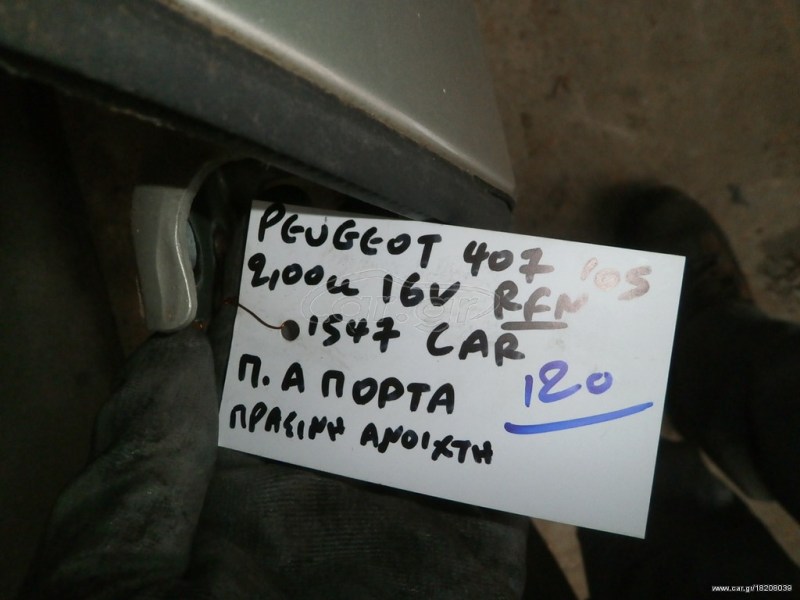 PEUGEOT 407 '05
2,00cc 16V RFN
1547 CAR
Π. Α ΠΟΡΤΑ 120
ΠΡΑΣΙΝΗ ΑΝΟΙΧΤΗ
car.gr
www.car.gr/18208039